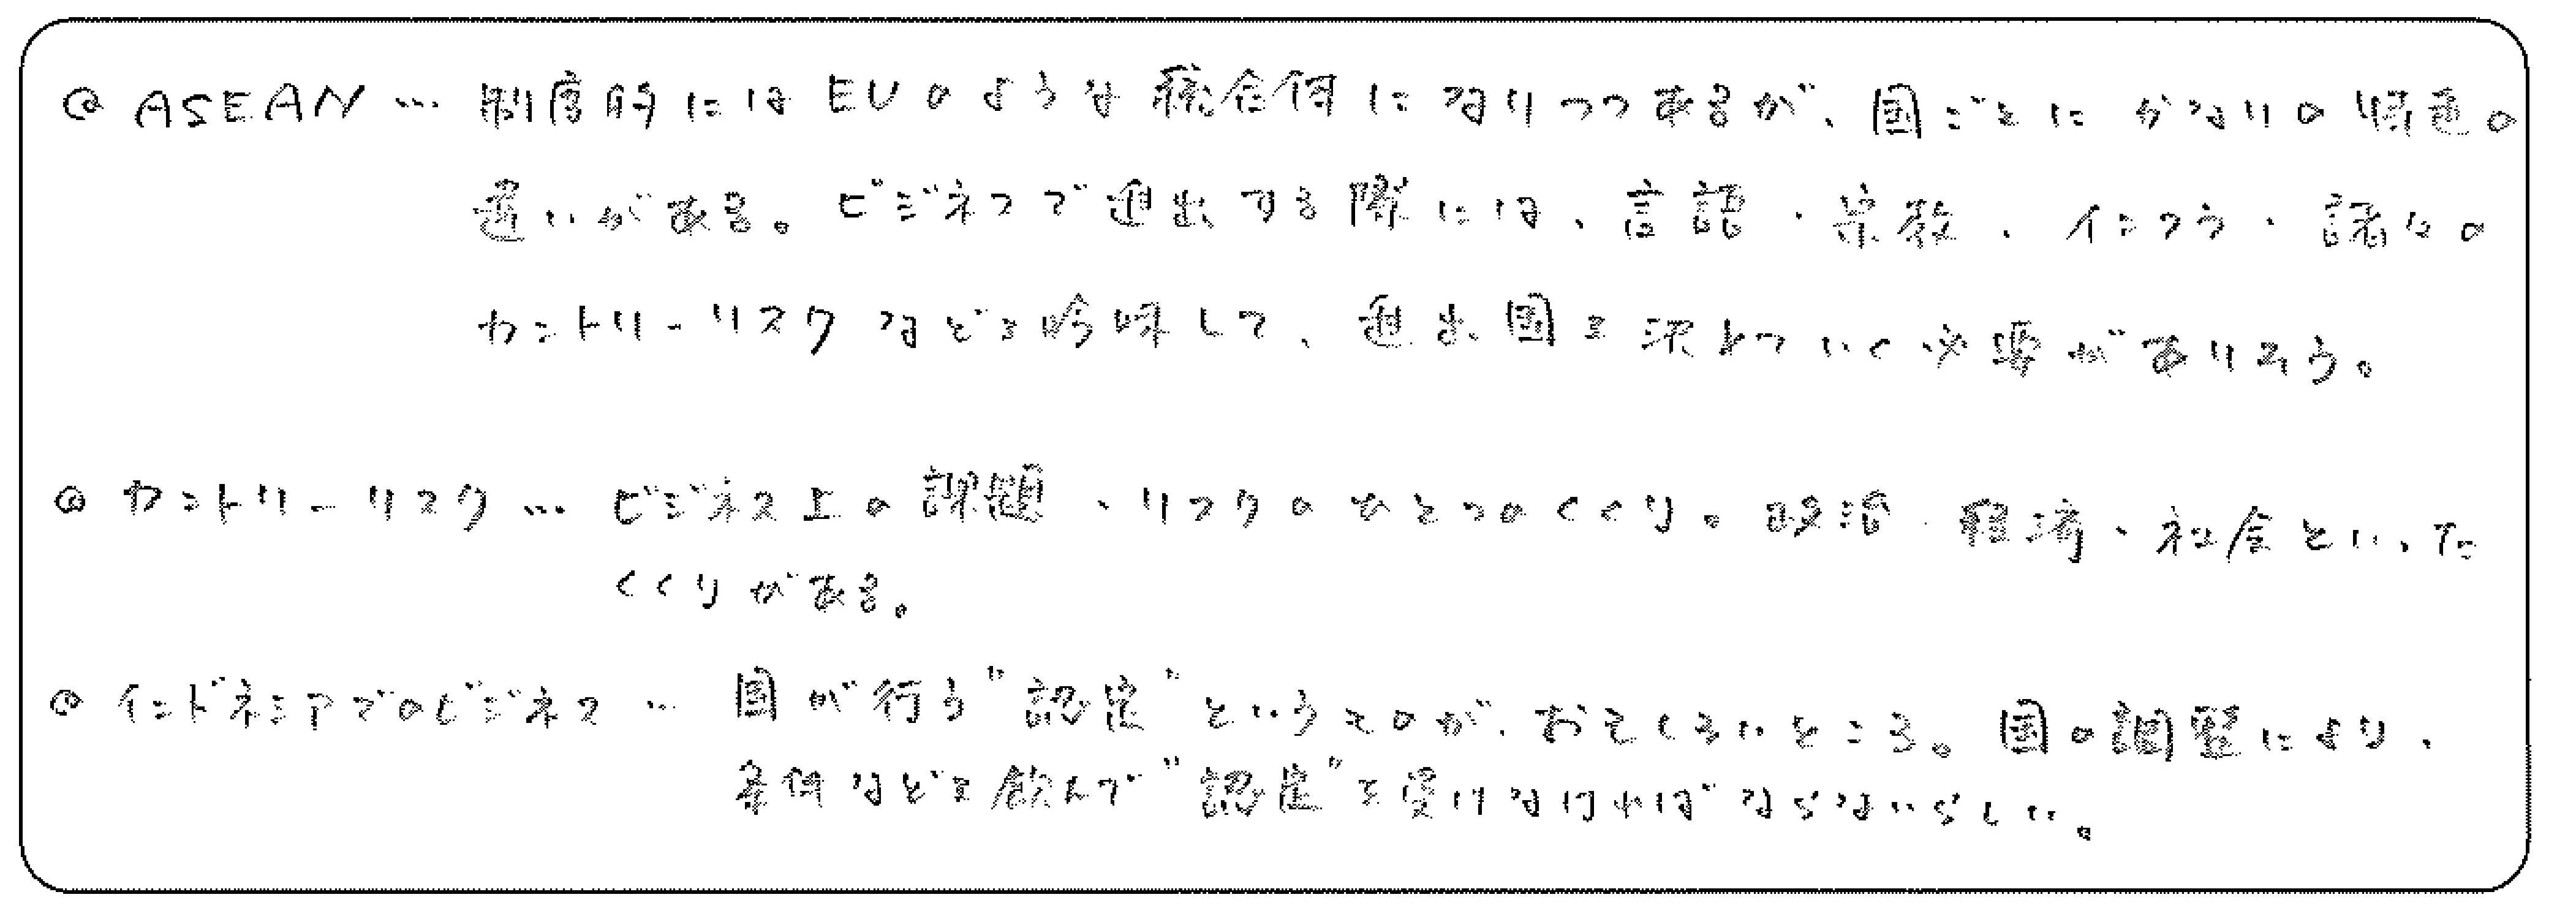 ◎ ASEAN … 制度的にはEUのような統合体になりつつあるが、国ごとにかなりの特色の
違いがある。ビジネスで進出する際には、言語・宗教・インフラ・諸々の
カントリーリスクなどを吟味して、進出国を決めていく必要がありそう。
◎ カントリーリスク … ビジネス上の課題・リスクのひとつのくくり。政治・経済・社会といった
くくりがある。
◎ インドネシアでのビジネス … 国が行う"認定"というものが、おそくるいところ。国の調整により、
条件などを飲んで"認定"を受けなければならないらしい。